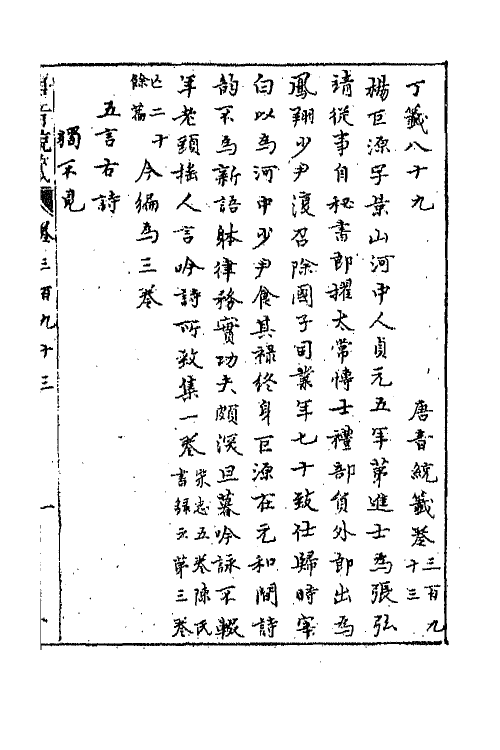 丁籤八十九　唐音統籤卷三百九十三
楊巨源字景山河中人貞元五年第進士為張弘
靖從事自秘書郎擢太常愽士禮部貟外郎出為
鳳翔少尹復召除國子司業年七十致仕歸時宰
白以為河中少尹食其祿終身巨源在元和間詩
韵不為新語躰律務實功夫頗深旦暮吟詠不輟
年老頭揺人言吟詩所致集一卷宋志五卷陳氏書錄云第三卷
亡二十餘篇今編為三卷
五言古詩
獨不見
唐音統籤
卷三百九十三
一